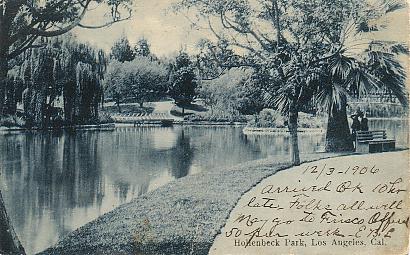 12/3-1906
arrived OK 10hr
late. Folks all well
May go to Frisco. Offered
50 per week. E.B.L
Hollenbeck Park, Los Angeles, Cal.